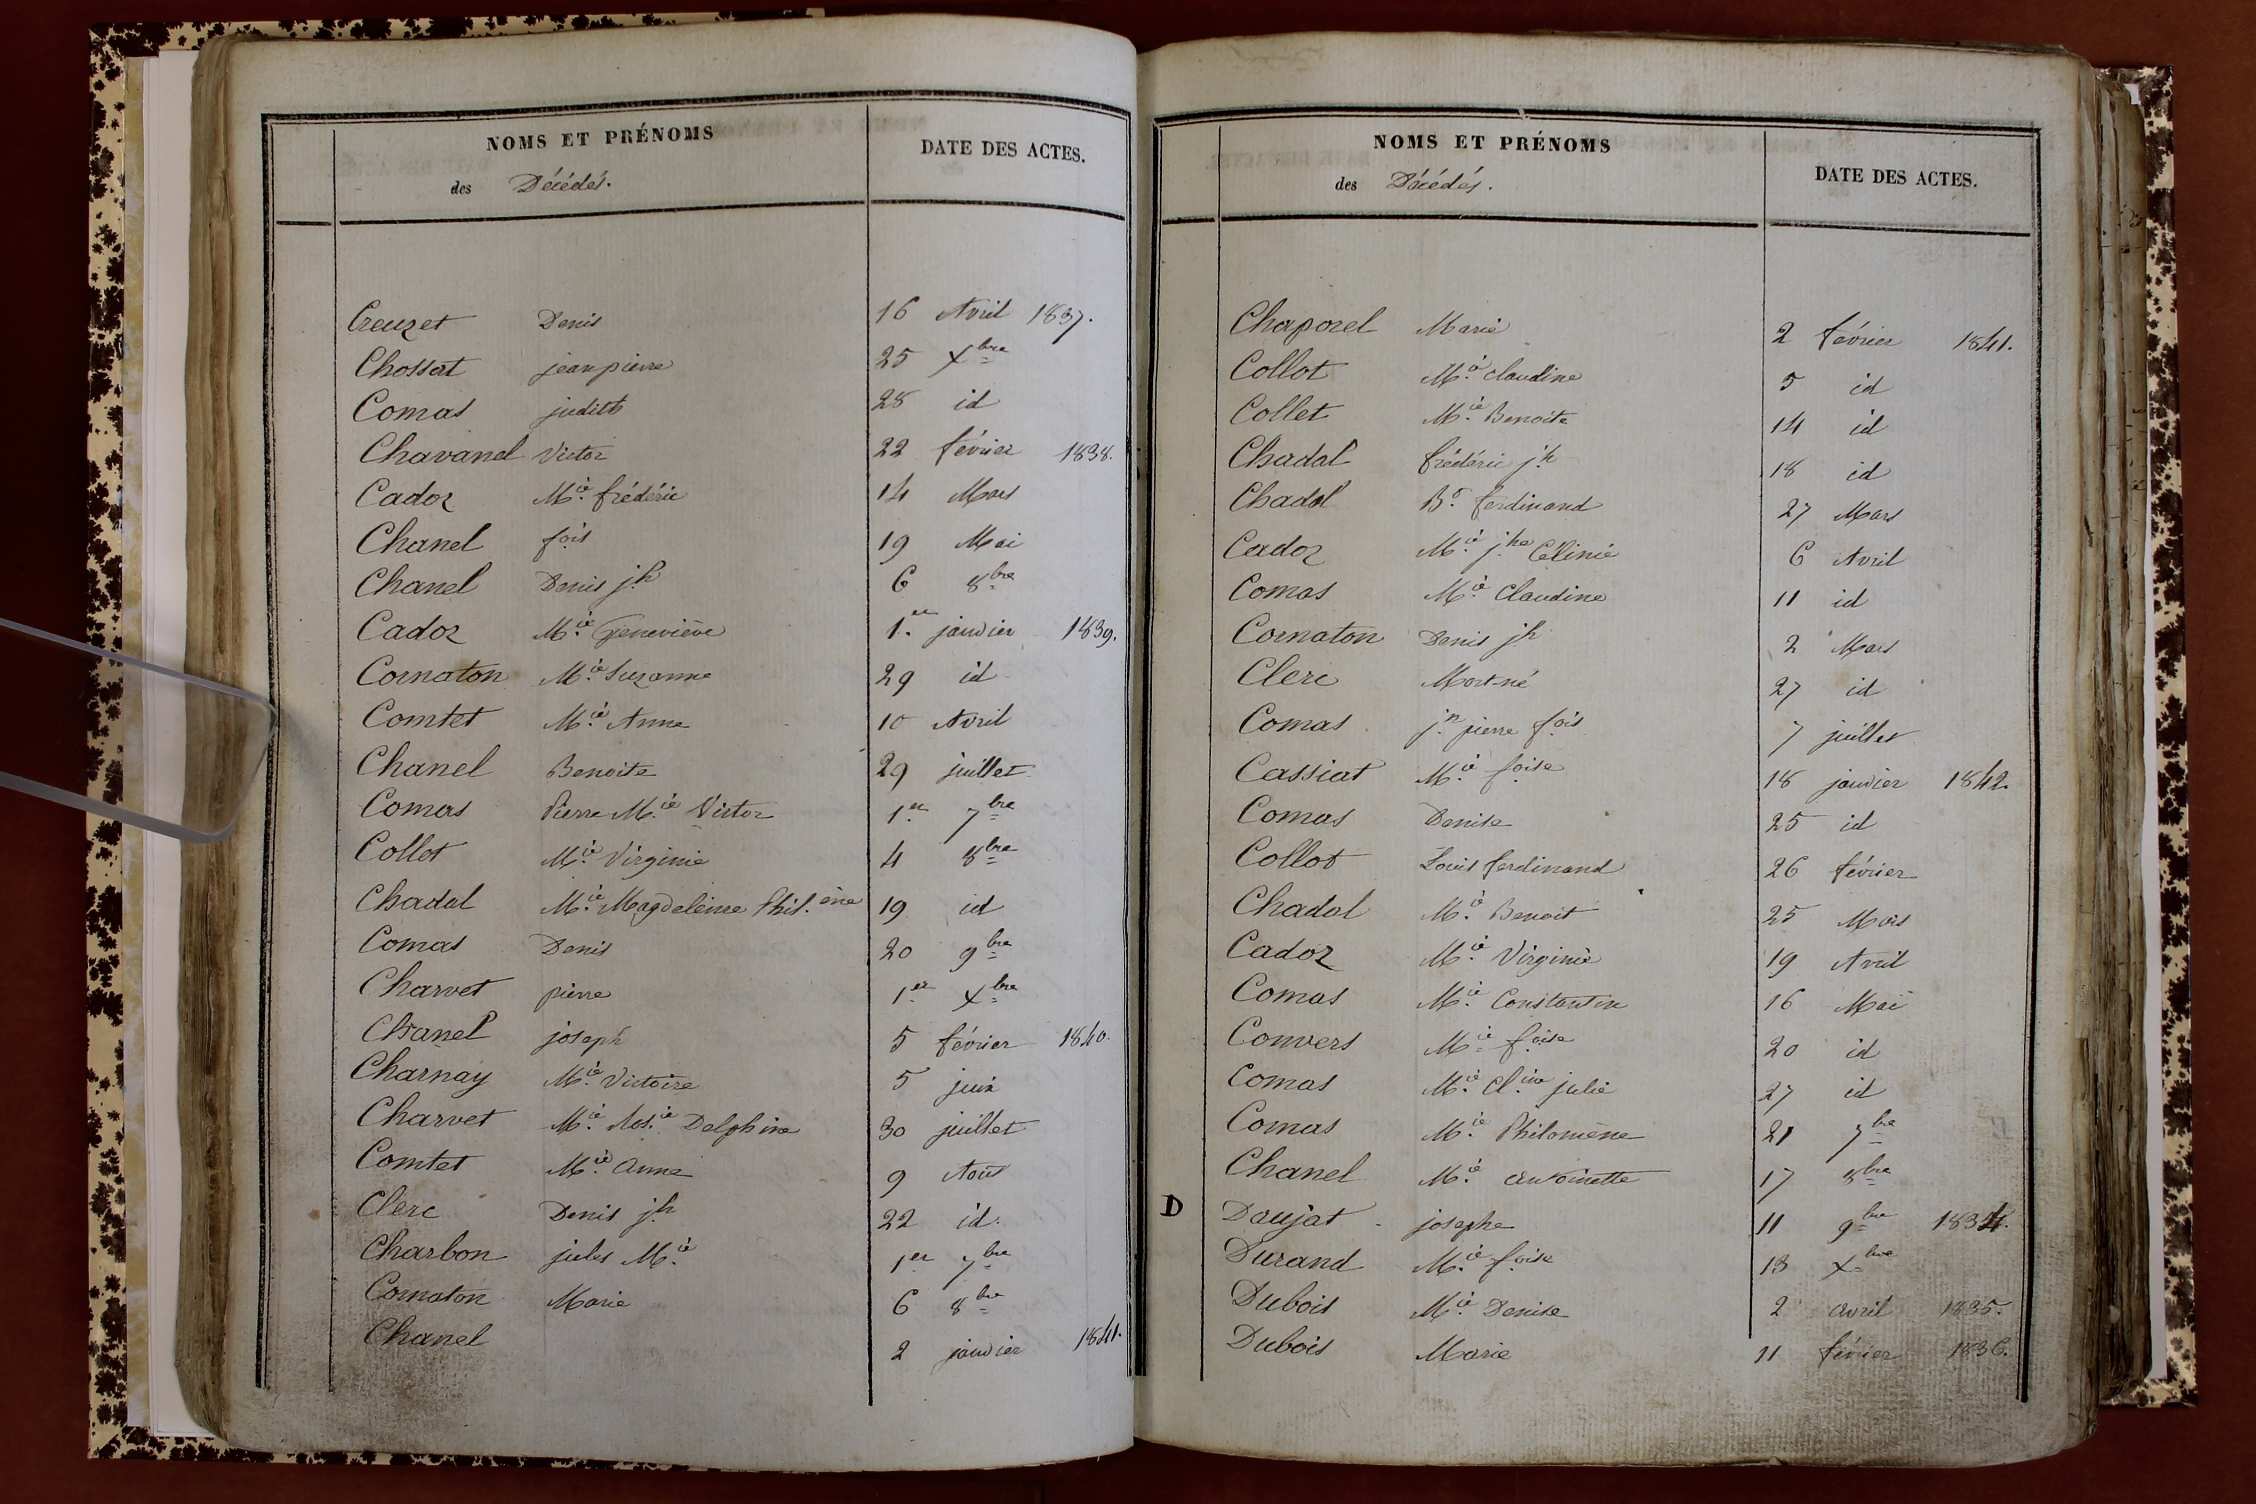 NOMS ET PRÉNOMS
des Décédés.
DATE DES ACTES.
Creuzet Denis 16 Avril 1837.
Chossat jean pierre 25 Xbre
Comas judith 28 id
Chavanel Victor 22 février 1838.
Cador Mie frédéric 14 Mars
Chanel fois 19 Mai
Chanel Denis jh 6 8bre
Cador Mie Geneviève 1er janvier 1839.
Cornaton Mie Suzanne 29 id
Comtet Mie Anne 10 Avril
Chanel Benoite 29 juillet
Comas Pierre Mie Victor 1er 7bre
Collet Mie Virginie 4 8bre
Chadal Mie Magdeleine Phil.ène 19 id
Comas Denis 20 9bre
Charvet pierre 1er Xbre
Chanel joseph 5 février 1840.
Charnay Mie Victoire 5 juin
Charvet Mie Delphine 30 juillet
Comtet Mie Anne 9 Aout
Clerc Denis jh 22 id.
Charbon jules Mie 1er 7bre
Cornaton Marie 6 8bre
Chanel 2 janvier 1841.
NOMS ET PRÉNOMS
des Décédés.
DATE DES ACTES.
Chaporel Marie 2 février 1841.
Collot Mie claudine 5 id
Collet Mie Benoite 14 id
Chadal frédéric jh 18 id
Chadal Bt ferdinand 27 Mars
Cador Mie jhe Célinie 6 Avril
Comas Mie Claudine 11 id
Cornaton Denis jh 2 Mars
Clerc Mort-né 27 id
Comas jn pierre fois 7 juillet
Cassiat Mie foise 18 janvier 1842.
Comas Denise 25 id
Collot Louis ferdinand 26 février
Chadal Mie Benoit 25 Mars
Cador Mie Virginie 19 Avril
Comas Mie Constantin 16 Mai
Convers Mie foise 20 id
Comas Mie Cl.ine julie 27 id
Comas Mie Philomène 21 7bre
Chanel Mie antoinette 17 8bre
D Daujat - josephe 11 9bre 1834.
Durand Mie foise 13 Xbre
Dubois Mie Denise 2 avril 1835.
Dubois Marie 11 février 1836.